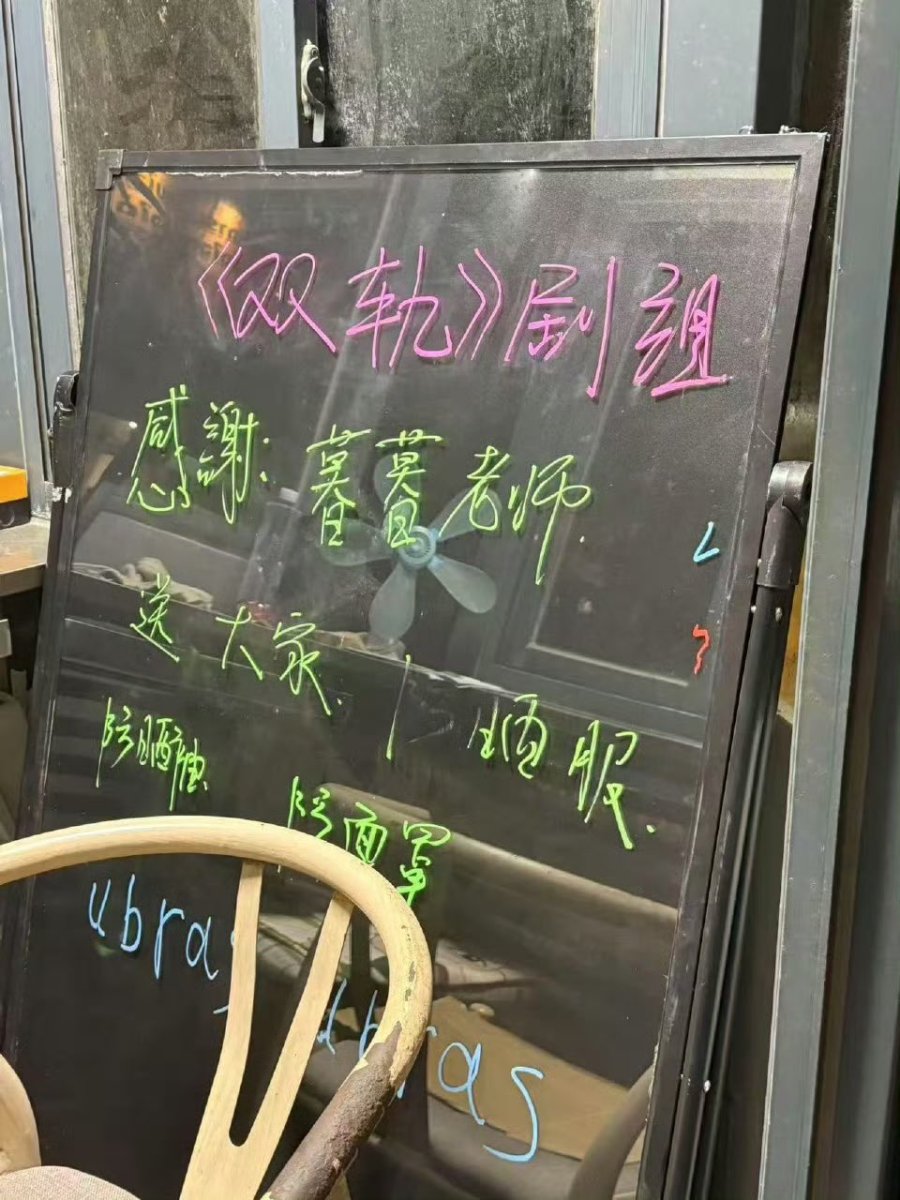 《双轨》剧组
感謝:暮暮老师.
送大家.
晒服.
防晒
防面罩
ubras
ubras